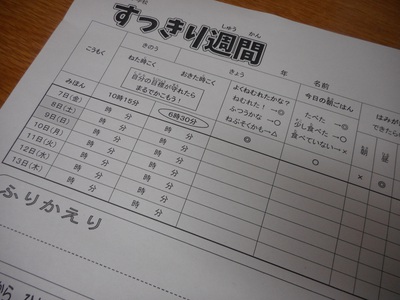 学校
すっきり週間
しゅう かん
年 名前
きのう きょう
こうもく ねた時こく おきた時こく よくねむれたかな？ 今日の朝ごはん はみがき
自分の目標が守れたら
まるでかこもう！
ねむれた！→◎
ふつうかな→○
ねぶそくかも→△
たべた→◎
少し食べた→○
食べていない→×
できたら
朝
みほん 10時15分 6時30分 ◎ ○ × ◎
7日(金) 時 分 時 分
8日(土) 時 分 時 分
9日(日) 時 分 時 分
10日(月) 時 分 時 分
11日(火) 時 分 時 分
12日(水) 時 分 時 分
13日(木) 時 分 時 分
ふりかえり